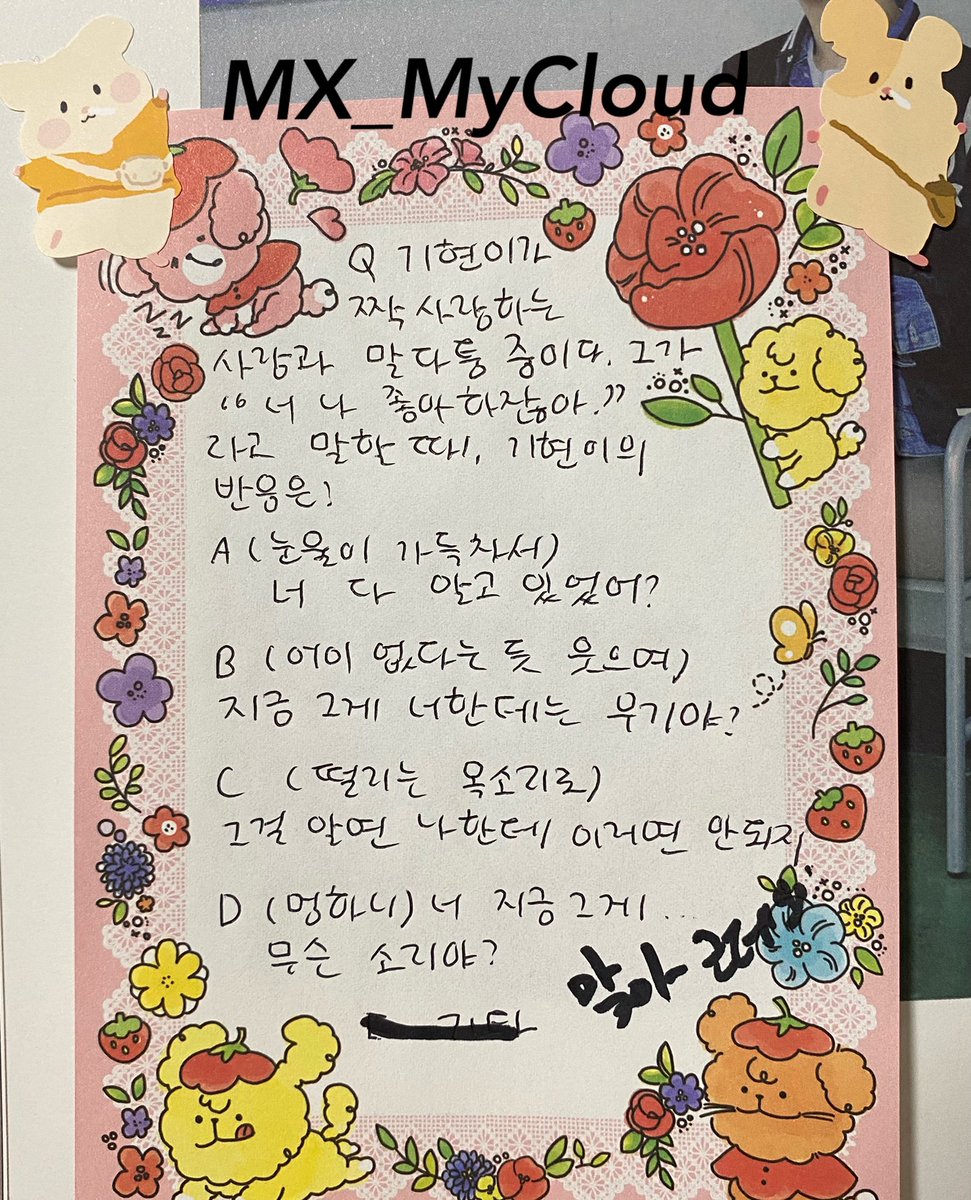 MX_MyCloud
Q 기현이가
짝사랑하는
사람과 말다툼 중이다. 그가
“너 나 좋아하잖아.”
라고 말할 때, 기현이의
반응은?
A (눈물이 가득차서)
너 다 알고 있었어?
B (어이 없다는 듯 웃으며)
지금 그게 너한테는 무기야?
C (떨리는 목소리로)
그걸 알면 나한테 이러면 안되지
D (멍하니) 너 지금 그게...
무슨 소리야?
맞아
기타